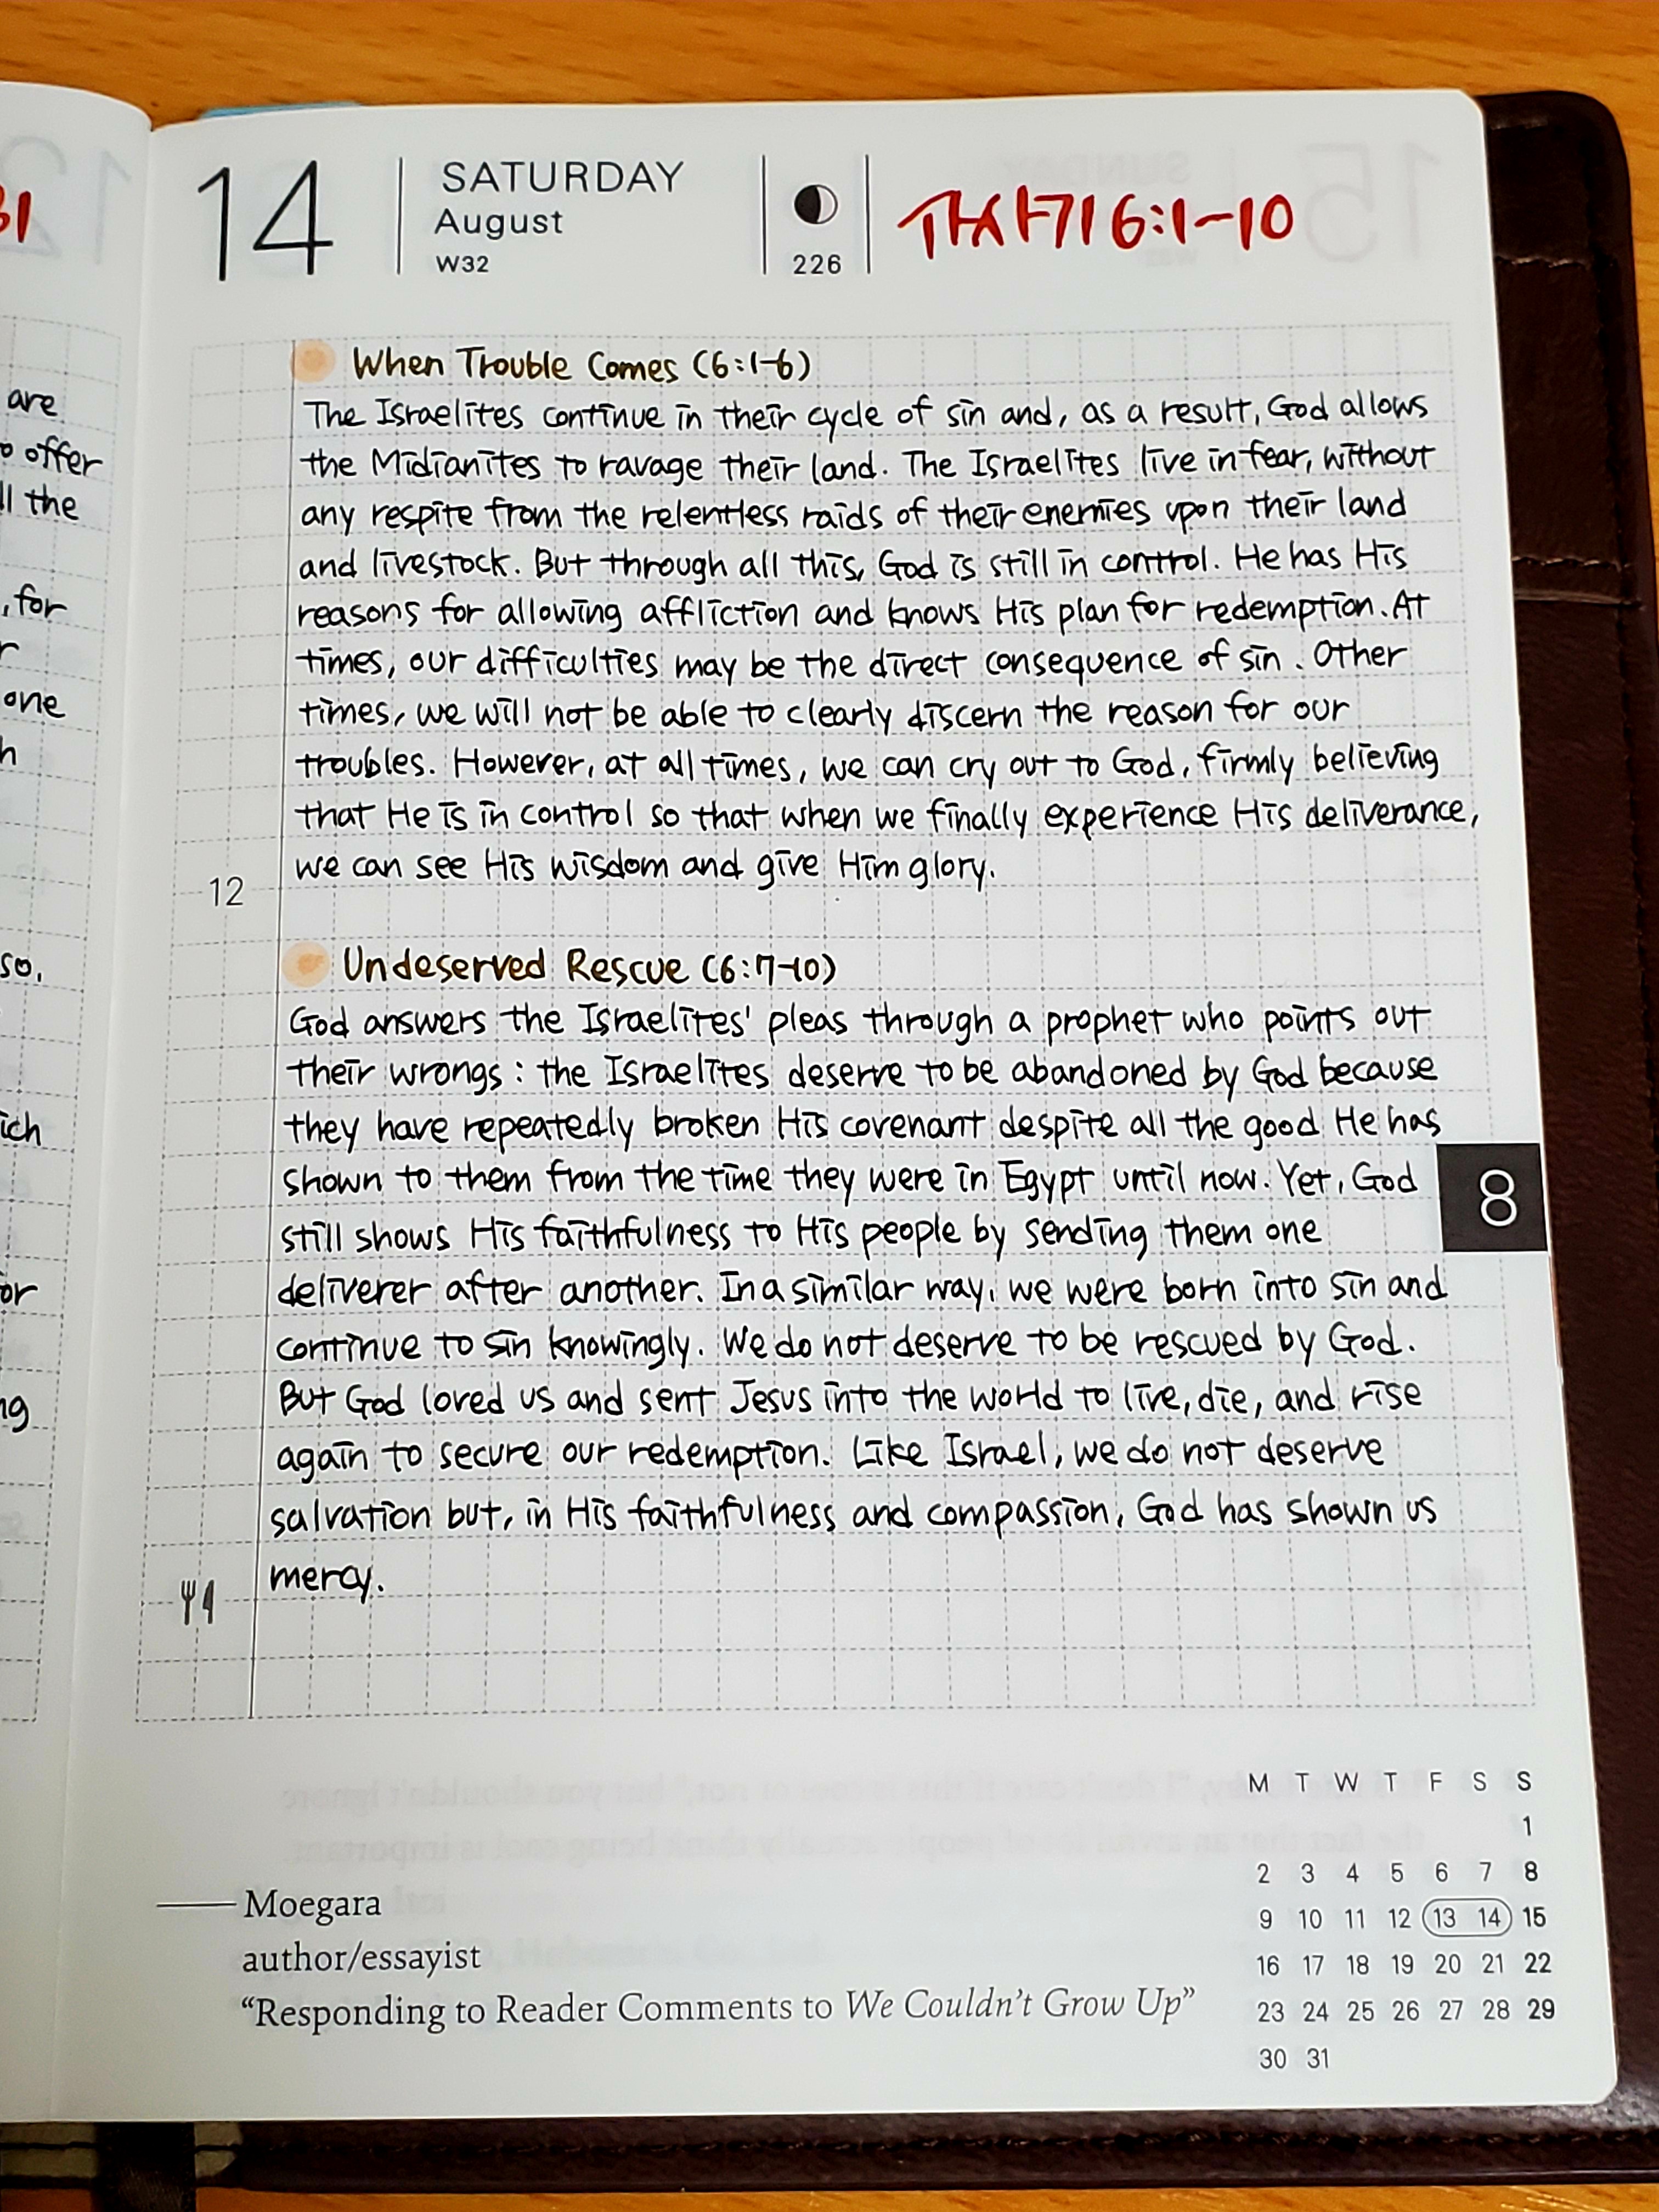 31
are
offer
ll the
, for
r
one
h
so,
ich
or
ng
14
SATURDAY
August
W32
226
사사기 6:1-10
When Trouble Comes (6:1-6)
The Israelites continue in their cycle of sin and, as a result, God allows
the Midianites to ravage their land. The Israelites live in fear, without
any respite from the relentless raids of their enemies upon their land
and livestock. But through all this, God is still in control. He has His
reasons for allowing affliction and knows His plan for redemption. At
times, our difficulties may be the direct consequence of sin. Other
times, we will not be able to clearly discern the reason for our
troubles. However, at all times, we can cry out to God, firmly believing
that He is in control so that when we finally experience His deliverance,
we can see His wisdom and give Him glory.
12
Undeserved Rescue (6:7-10)
God answers the Israelites' pleas through a prophet who points out
their wrongs: the Israelites deserve to be abandoned by God because
they have repeatedly broken His covenant despite all the good He has
shown to them from the time they were in Egypt until now. Yet, God
still shows His faithfulness to His people by sending them one
deliverer after another. In a similar way, we were born into sin and
continue to sin knowingly. We do not deserve to be rescued by God.
But God loved us and sent Jesus into the world to live, die, and rise
again to secure our redemption. Like Israel, we do not deserve
salvation but, in His faithfulness and compassion, God has shown us
mercy.
8
—— Moegara
author/essayist
“Responding to Reader Comments to We Couldn't Grow Up”
M T W T F S S
1
2 3 4 5 6 7 8
9 10 11 12 13 14 15
16 17 18 19 20 21 22
23 24 25 26 27 28 29
30 31